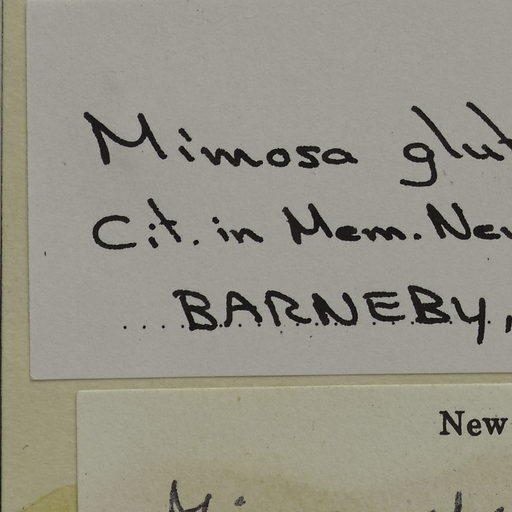 Mimosa glut
Cit. in Mem. New
BARNEBY,
New